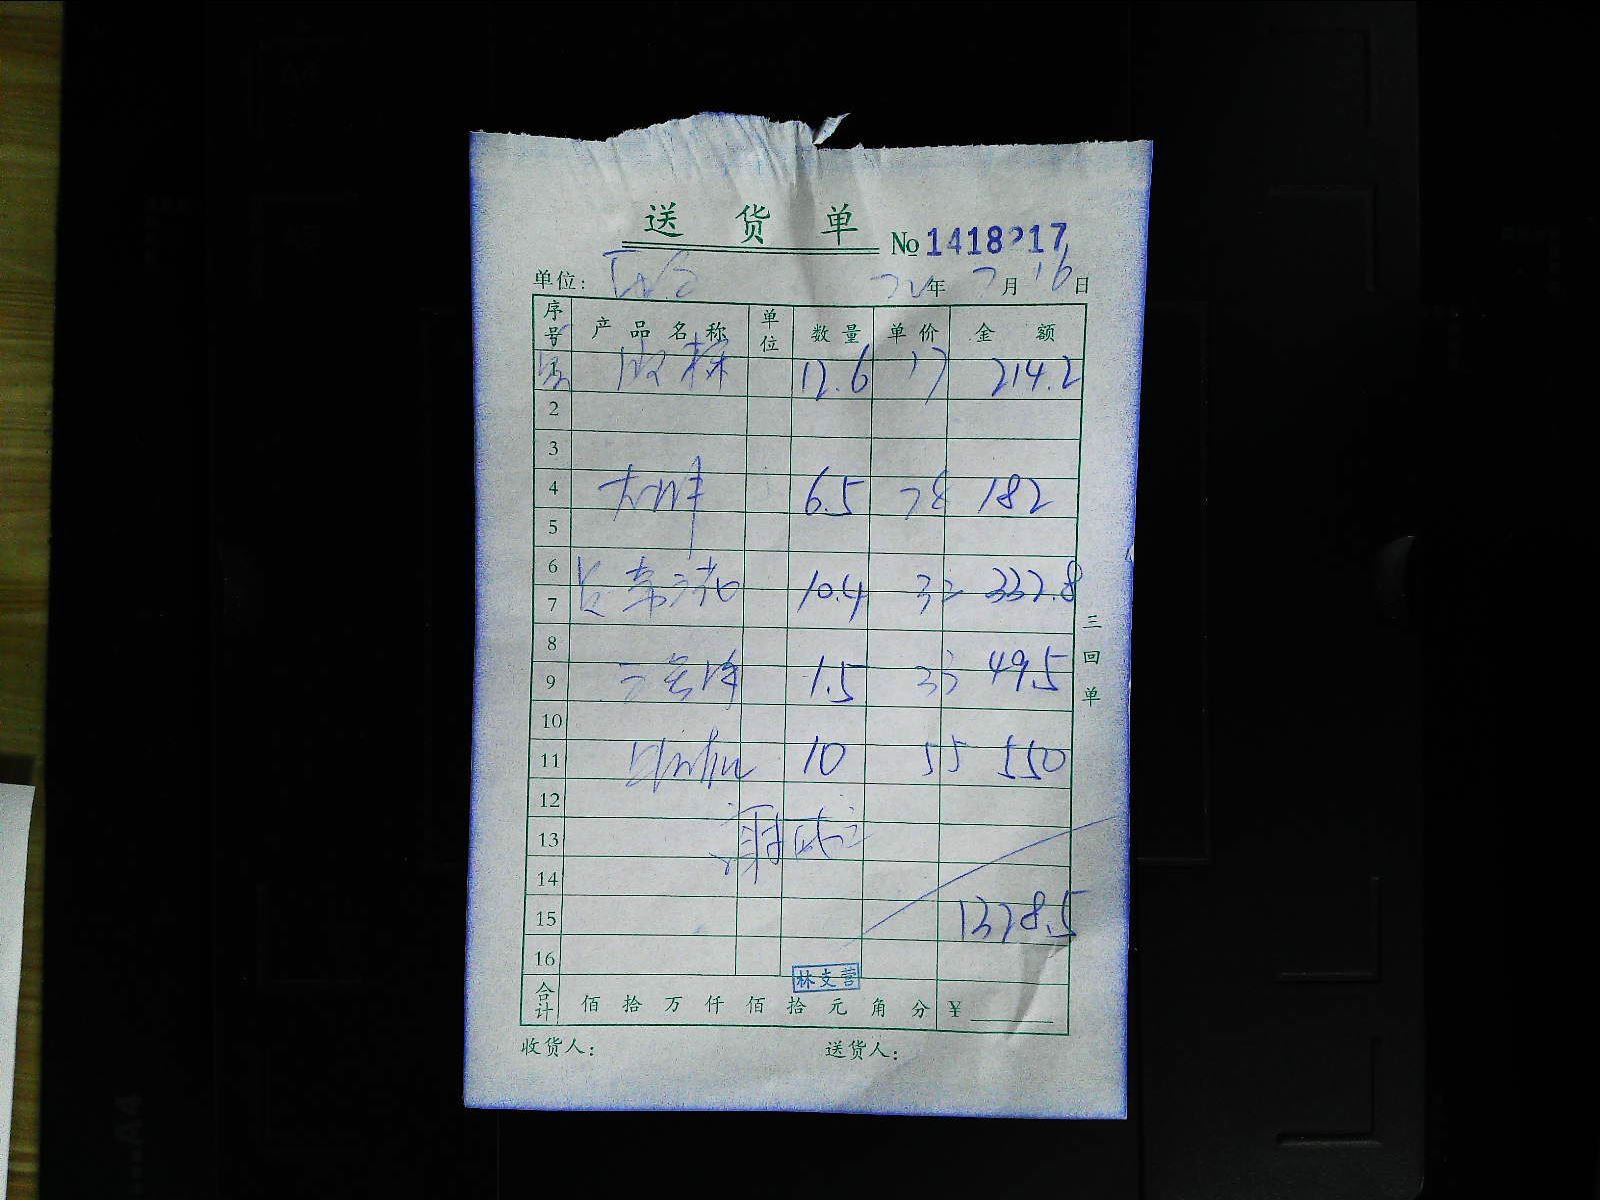 送货单 № 1418217
单位: 22年7月16日
序号 产品名称 单位 数量 单价 金额
1 12.6 17 214.2
2
3
4 6.5 28 182
5
6
7 10.4 32 332.8
8
9 1.5 33 49.5
10
11 10 55 550
12
13
14
15 1328.5
16
林支营
合计 佰拾万仟佰拾元角分 ¥
收货人: 送货人:
三回单